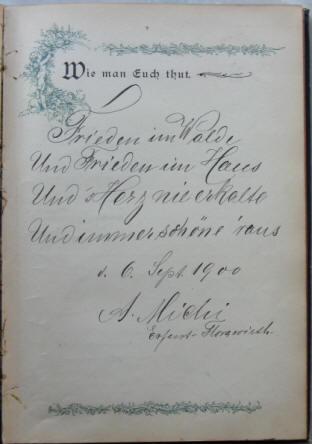 Wie man Euch thut.
Frieden im Walde
Und Frieden im Haus
Und 's Herz nie erkalte
Und immer schöne 'raus
d. 6. Sept. 1900
A. Michi